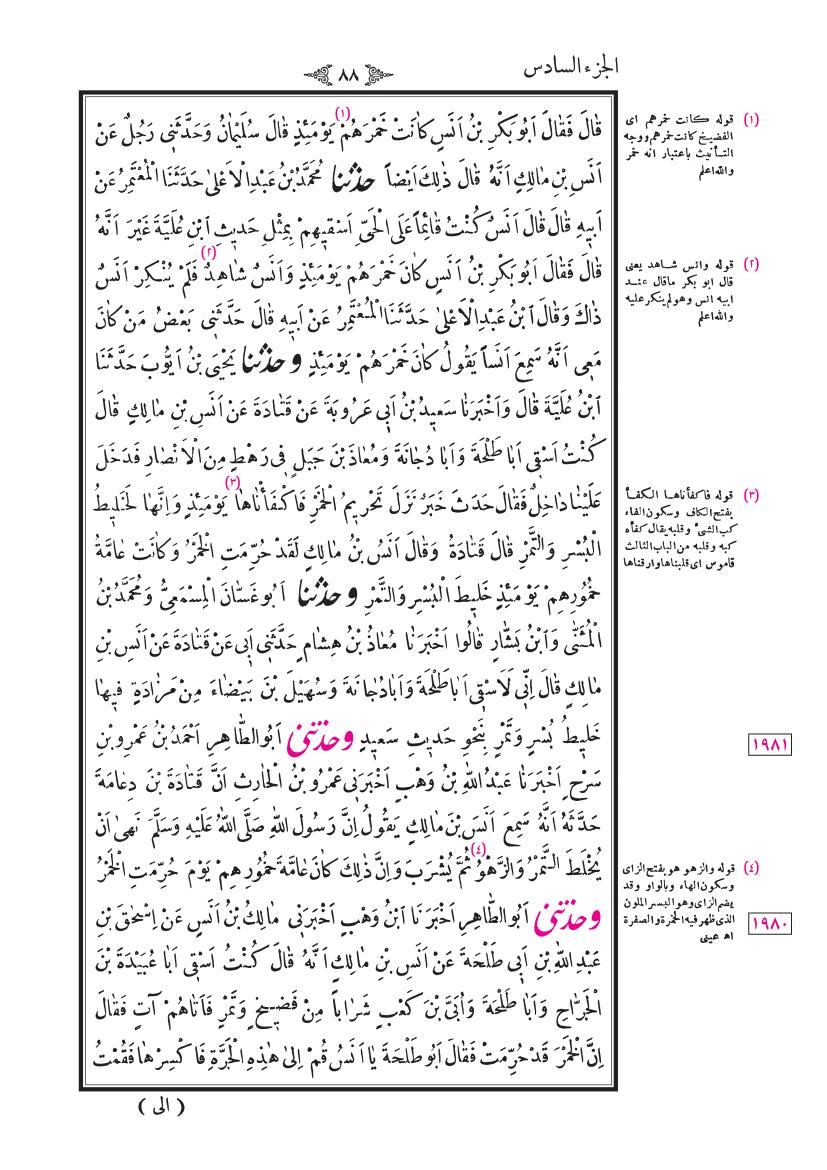 الجزء السادس
٨٨
قَالَ فَقَالَ اَبُو بَكْرِ بْنُ اَنَسٍ كَانَتْ خَمْرَهُمْ (١) يَوْمَئِذٍ قَالَ سُلَيْمَانُ وَحَدَّثَنِي رَجُلٌ عَنْ
اَنَسِ بْنِ مَالِكٍ اَنَّهُ قَالَ ذٰلِكَ اَيْضاً حدثنا مُحَمَّدُ بْنُ عَبْدِ الْاَعْلىٰ حَدَّثَنَا الْمُعْتَمِرُ عَنْ
اَبيهِ قَالَ قَالَ اَنَسٌ كُنْتُ قَائِماً عَلَى الْحَيِّ اَسْقِيهِمْ بِمِثْلِ حَديثِ ابْنِ عُلَيَّةَ غَيْرَ اَنَّهُ
قَالَ فَقَالَ اَبُو بَكْرِ بْنُ اَنَسٍ كَانَ خَمْرَهُمْ يَوْمَئِذٍ وَاَنَسٌ شَاهِدٌ (٢) فَلَمْ يُنْكِرْ اَنَسٌ
ذَاكَ وَقَالَ ابْنُ عَبْدِ الْاَعْلىٰ حَدَّثَنَا الْمُعْتَمِرُ عَنْ اَبيهِ قَالَ حَدَّثَنِي بَعْضُ مَنْ كَانَ
مَعِي اَنَّهُ سَمِعَ اَنَساً يَقُولُ كَانَ خَمْرَهُمْ يَوْمَئِذٍ وحدثنا يَحْيَى بْنُ اَيُّوبَ حَدَّثَنَا
ابْنُ عُلَيَّةَ قَالَ وَاَخْبَرَنَا سَعيدُ بْنُ اَبي عَرُوبَةَ عَنْ قَتَادَةَ عَنْ اَنَسِ بْنِ مَالِكٍ قَالَ
كُنْتُ اَسْقِي اَبَا طَلْحَةَ وَاَبَا دُجَانَةَ وَمُعَاذَ بْنَ جَبَلٍ فِي رَهْطٍ مِنَ الْاَنْصَارِ فَدَخَلَ
عَلَيْنَا دَاخِلٌ فَقَالَ حَدَثَ خَبَرٌ نَزَلَ تَحْرِيمُ الْخَمْرِ فَاَكْفَأْنَاهَا (٣) يَوْمَئِذٍ وَاِنَّهَا لَخَلِيطُ
الْبُسْرِ وَالتَّمْرِ قَالَ قَتَادَةُ وَقَالَ اَنَسُ بْنُ مَالِكٍ لَقَدْ حُرِّمَتِ الْخَمْرُ وَكَانَتْ عَامَّةُ
خُمُورِهِمْ يَوْمَئِذٍ خَلِيطَ الْبُسْرِ وَالتَّمْرِ وحدثنا اَبُو غَسَّانَ الْمِسْمَعِيُّ وَمُحَمَّدُ بْنُ
الْمُثَنّٰى وَابْنُ بَشَّارٍ قَالُوا اَخْبَرَنَا مُعَاذُ بْنُ هِشَامٍ حَدَّثَنِي اَبِي عَنْ قَتَادَةَ عَنْ اَنَسِ بْنِ
مَالِكٍ قَالَ اِنِّي لَاَسْقِي اَبَا طَلْحَةَ وَاَبَا دُجَانَةَ وَسُهَيْلَ بْنَ بَيْضَاءَ مِنْ مَزَادَةٍ فِيهَا
خَلِيطُ بُسْرٍ وَتَمْرٍ بِنَحْوِ حَديثِ سَعيدٍ وحدثني اَبُو الطَّاهِرِ اَحْمَدُ بْنُ عَمْرِو بْنِ
سَرْحٍ اَخْبَرَنَا عَبْدُ اللّٰهِ بْنُ وَهْبٍ اَخْبَرَنِي عَمْرُو بْنُ الْحَارِثِ اَنَّ قَتَادَةَ بْنَ دِعَامَةَ
حَدَّثَهُ اَنَّهُ سَمِعَ اَنَسَ بْنَ مَالِكٍ يَقُولُ اِنَّ رَسُولَ اللّٰهِ صَلَّى اللّٰهُ عَلَيْهِ وَسَلَّمَ نَهىٰ اَنْ
يُخْلَطَ التَّمْرُ وَالزَّهْوُ (٤) ثُمَّ يُشْرَبَ وَاِنَّ ذٰلِكَ كَانَ عَامَّةَ خُمُورِهِمْ يَوْمَ حُرِّمَتِ الْخَمْرُ
وحدثني اَبُو الطَّاهِرِ اَخْبَرَنَا ابْنُ وَهْبٍ اَخْبَرَنِي مَالِكُ بْنُ اَنَسٍ عَنْ اِسْحٰقَ بْنِ
عَبْدِ اللّٰهِ بْنِ اَبِي طَلْحَةَ عَنْ اَنَسِ بْنِ مَالِكٍ اَنَّهُ قَالَ كُنْتُ اَسْقِي اَبَا عُبَيْدَةَ بْنَ
الْجَرَّاحِ وَاَبَا طَلْحَةَ وَاُبَيَّ بْنَ كَعْبٍ شَرَاباً مِنْ فَضِيخٍ وَتَمْرٍ فَاَتَاهُمْ آتٍ فَقَالَ
اِنَّ الْخَمْرَ قَدْ حُرِّمَتْ فَقَالَ اَبُو طَلْحَةَ يَا اَنَسُ قُمْ اِلىٰ هٰذِهِ الْجَرَّةِ فَاكْسِرْهَا فَقُمْتُ
( الى )
(١) قوله كانت خمرهم اى
الفضيخ كانت خمرهم ووجه
التأنيث باعتبار انه خمر
والله اعلم
(٢) قوله وانس شاهد يعنى
قال ابو بكر ماقال عند
ابيه انس وهو لم ينكر عليه
والله اعلم
(٣) قوله فاكفأناها الكفأ
بفتح الكاف وسكون الفاء
كب الشئ وقلبه يقال كفأه
كبه وقلبه من الباب الثالث
قاموس اى قلبناها وارقناها
١٩٨١
(٤) قوله والزهو هو بفتح الزاى
وسكون الهاء وبالواو وقد
يضم الزاى وهو البسر الملون
الذى ظهر فيه الحمرة والصفرة
اه عينى
١٩٨٠